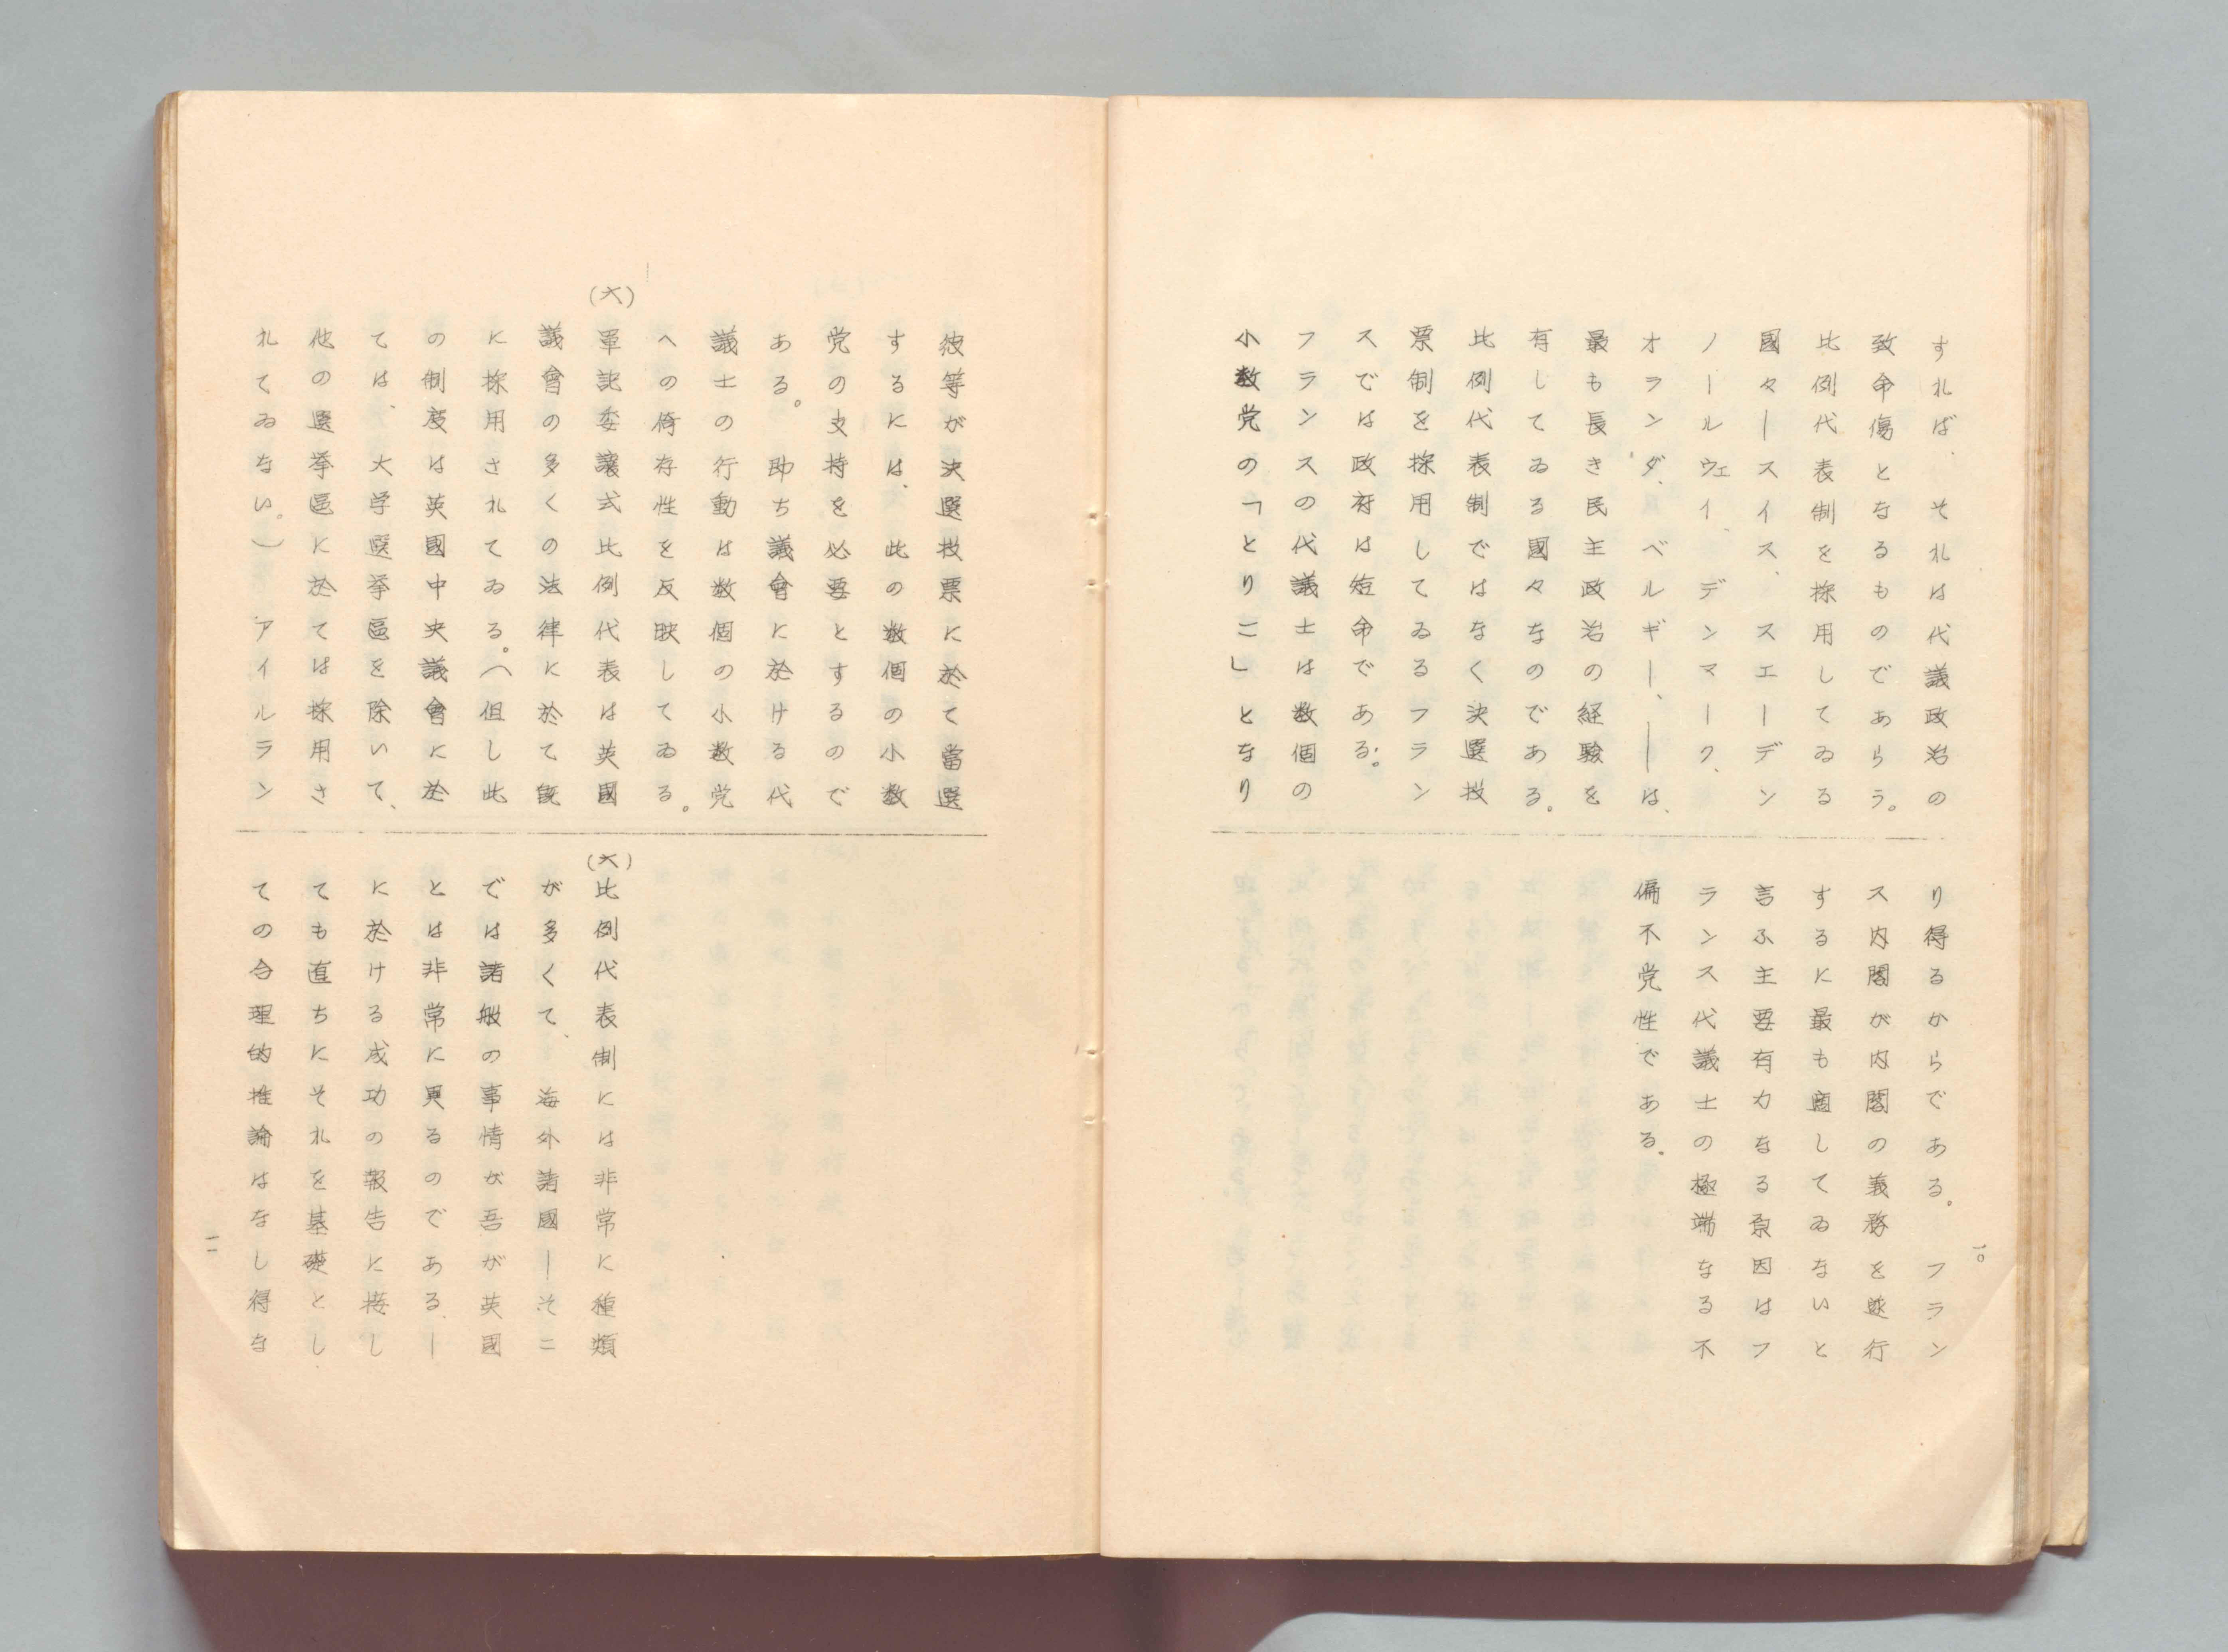 すれば、それは代議政治の
致命傷となるものであらう。
比例代表制を採用してゐる
國々ースイス、スエーデン
ノールウェイ、デンマーク、
オランダ、ベルギー、——は、
最も長き民主政治の経験を
有してゐる國々なのである。
比例代表制ではなく決選投
票制を採用してゐるフラン
スでは政府は短命である。
フランスの代議士は数個の
小数党の「とりこ」となり
り得るからである。フラン
ス内閣が内閣の義務を遂行
するに最も適してゐないと
言ふ主要有力なる原因はフ
ランス代議士の極端なる不
偏不党性である。
一〇
彼等が決選投票に於て當選
するには、此の数個の小数
党の支持を必要とするので
ある。助ち議會に於ける代
議士の行動は数個の小数党
への倚存性を反映してゐる。
(六)
單記委譲式比例代表は英國
議會の多くの法律に於て既
に採用されてゐる。(但し此
の制度は英國中央議會に於
ては、大学選挙區を除いて、
他の選挙區に於ては採用さ
れてゐない。)アイルラン
(六)
比例代表制には非常に種類
が多くて、海外諸國ーそこ
では諸般の事情が吾が英國
とは非常に異るのであるー
に於ける成功の報告に接し
ても直ちにそれを基礎とし
ての合理的推論はなし得な
一一